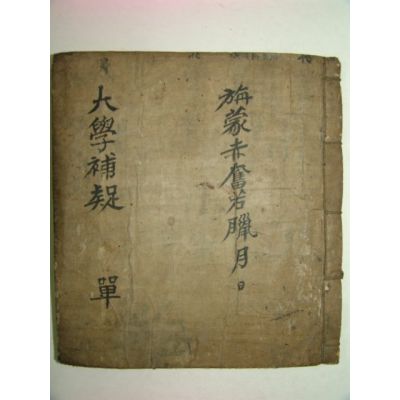 旃蒙赤奮若臘月日
大學補疑 單